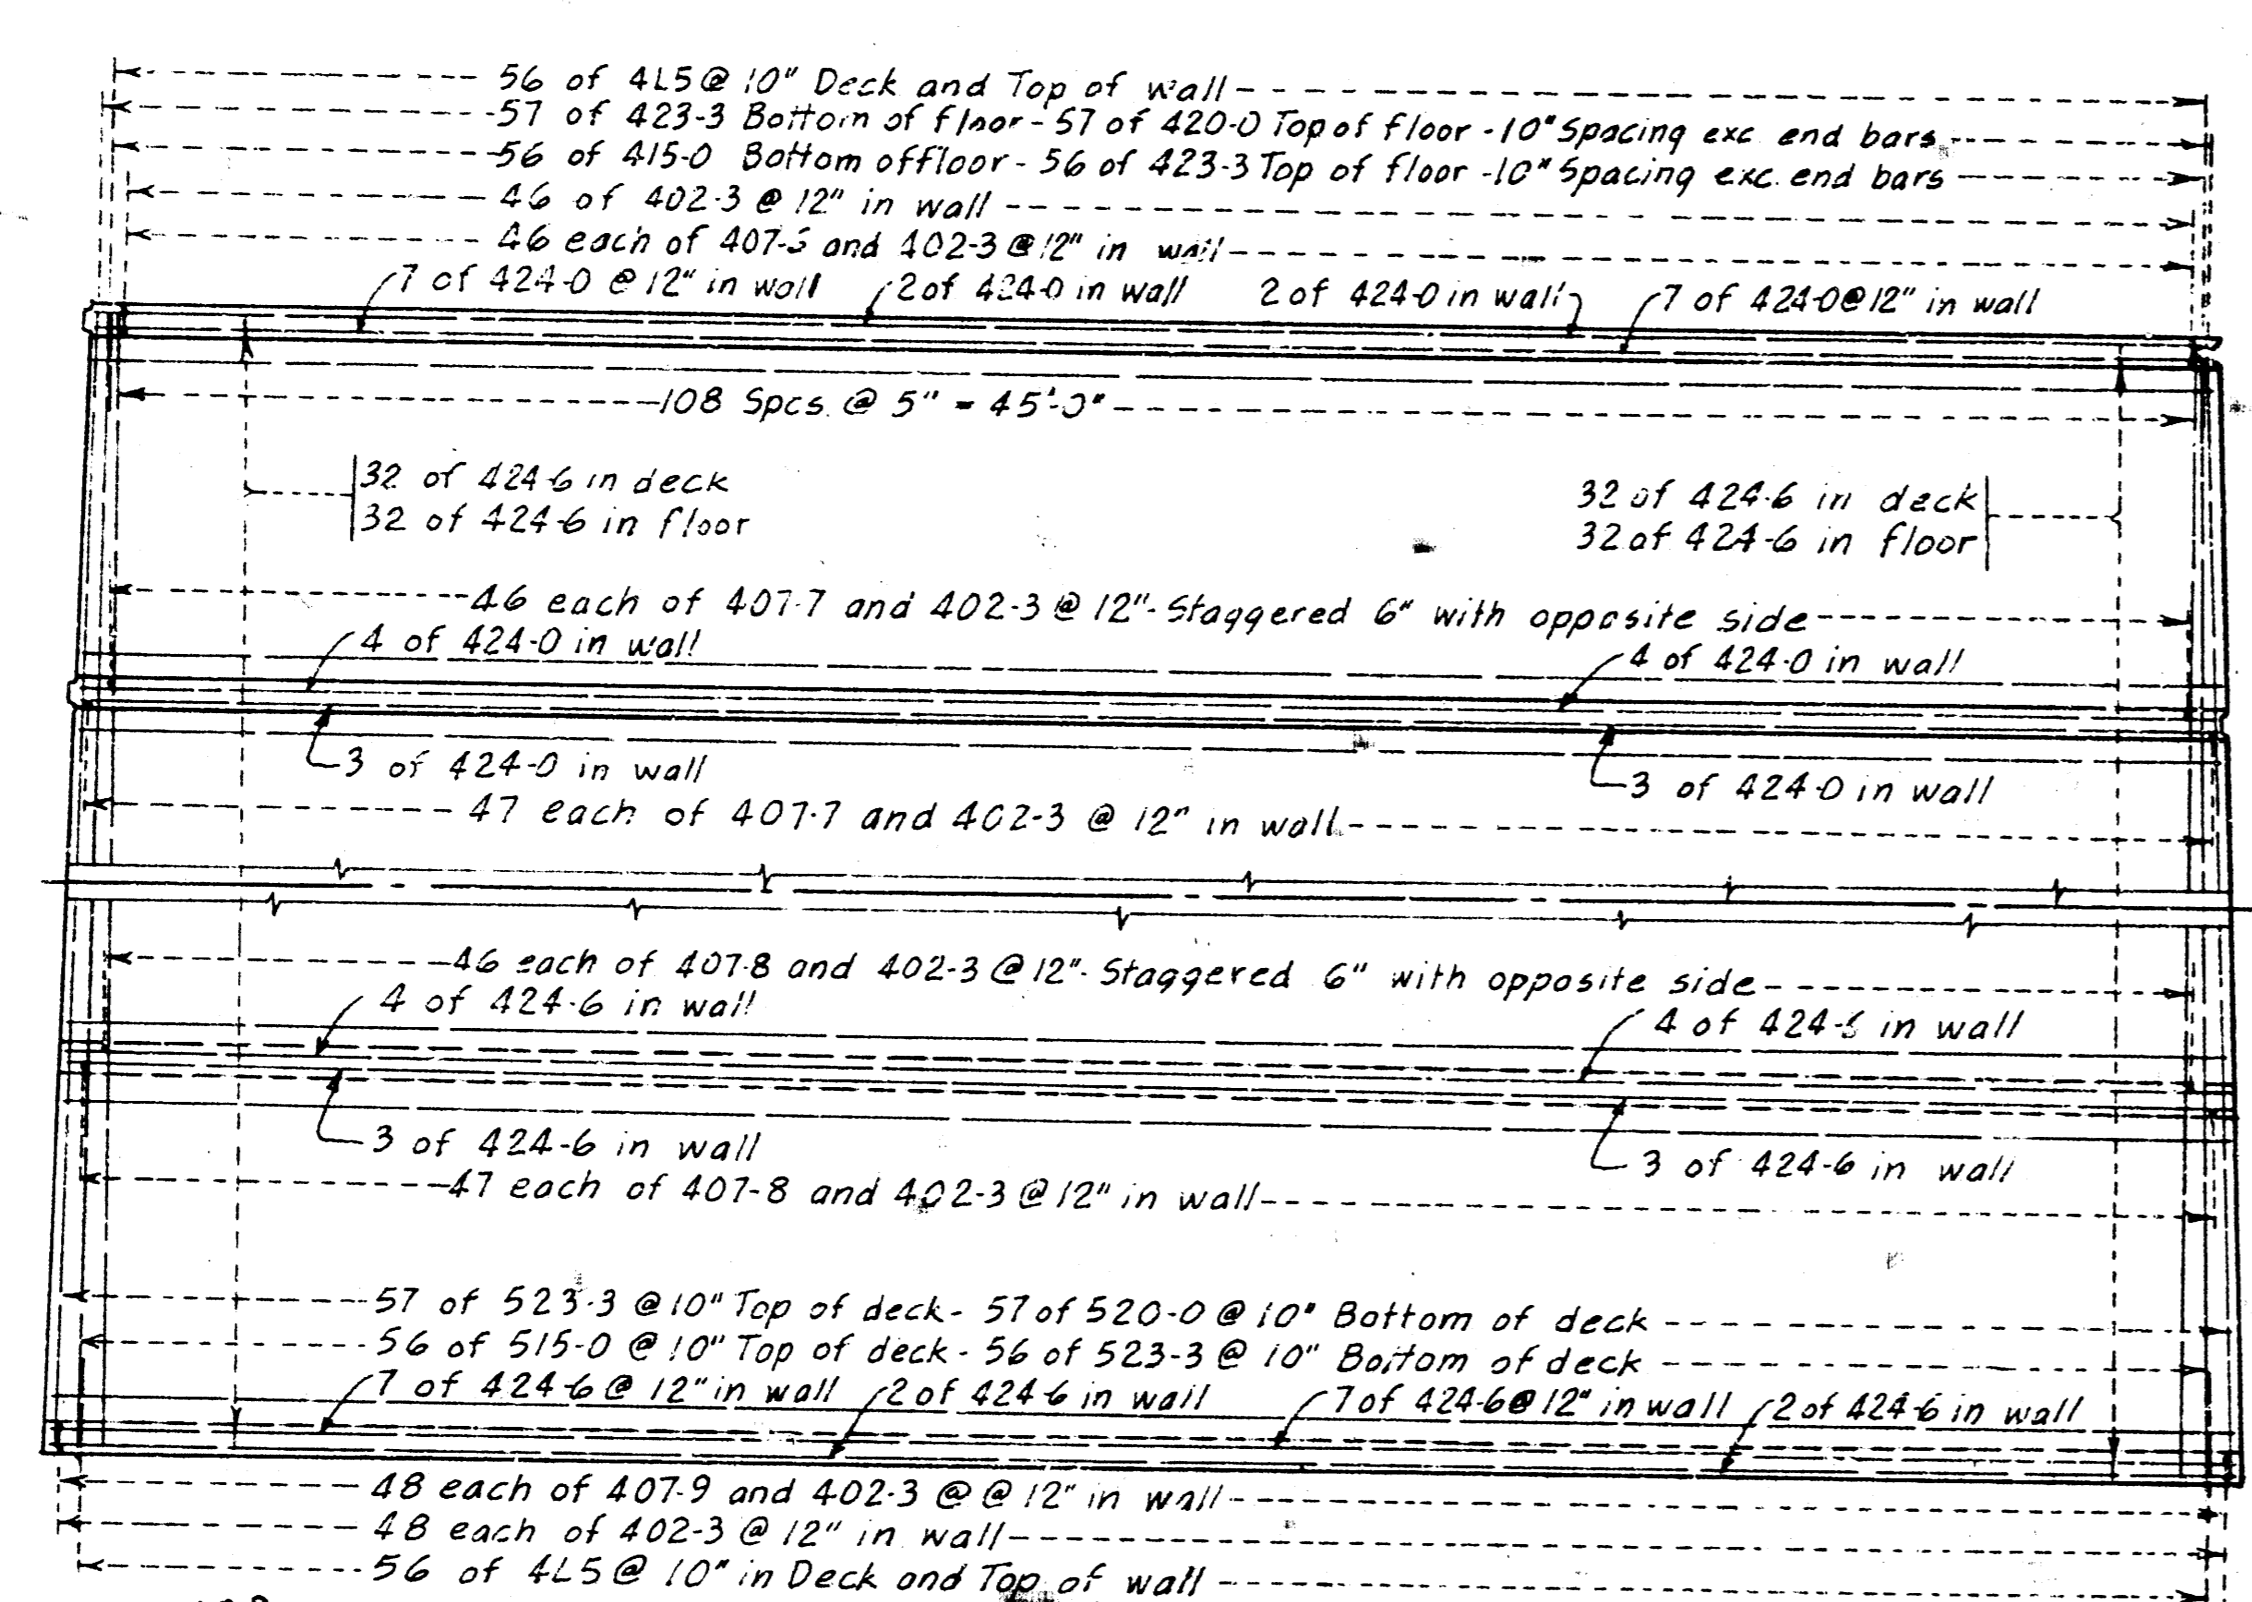 56 of 4L5 @ 10" Deck and Top of wall
57 of 423-3 Bottom of floor - 57 of 420-0 Top of floor - 10" Spacing exc. end bars
56 of 415-0 Bottom of floor - 56 of 423-3 Top of floor - 10" Spacing exc. end bars
46 of 402-3 @ 12" in wall
46 each of and 402-3 @ 12" in wall
7 of 424-0 @ 12" in wall 2 of 424-0 in wall 2 of 424-0 in wall 7 of 424-0 @ 12" in wall
108 Spcs. @ 5" = 45'-0"
32 of 424-6 in deck
32 of 424-6 in floor
32 of 424-6 in deck
32 of 424-6 in floor
46 each of 407-7 and 402-3 @ 12"- Staggered 6" with opposite side
4 of 424-0 in wall
4 of 424-0 in wall
3 of 424-0 in wall
3 of 424-0 in wall
47 each of 407-7 and 402-3 @ 12" in wall
46 each of 407-8 and 402-3 @ 12"- Staggered 6" with opposite side
4 of 424-6 in wall
4 of 424-6 in wall
3 of 424-6 in wall
3 of 424-6 in wall
47 each of 407-8 and 402-3 @ 12" in wall
57 of 523-3 @ 10" Top of deck - 57 of 520-0 @ 10" Bottom of deck
56 of 515-0 @ 10" Top of deck - 56 of 523-3 @ 10" Bottom of deck
7 of 424-6 @ 12" in wall 2 of 424-6 in wall 7 of 424-6 @ 12" in wall 2 of 424-6 in wall
48 each of 407-9 and 402-3 @ @ 12" in wall
48 each of 402-3 @ 12" in wall
56 of 4L5 @ 10" in Deck and Top of wall